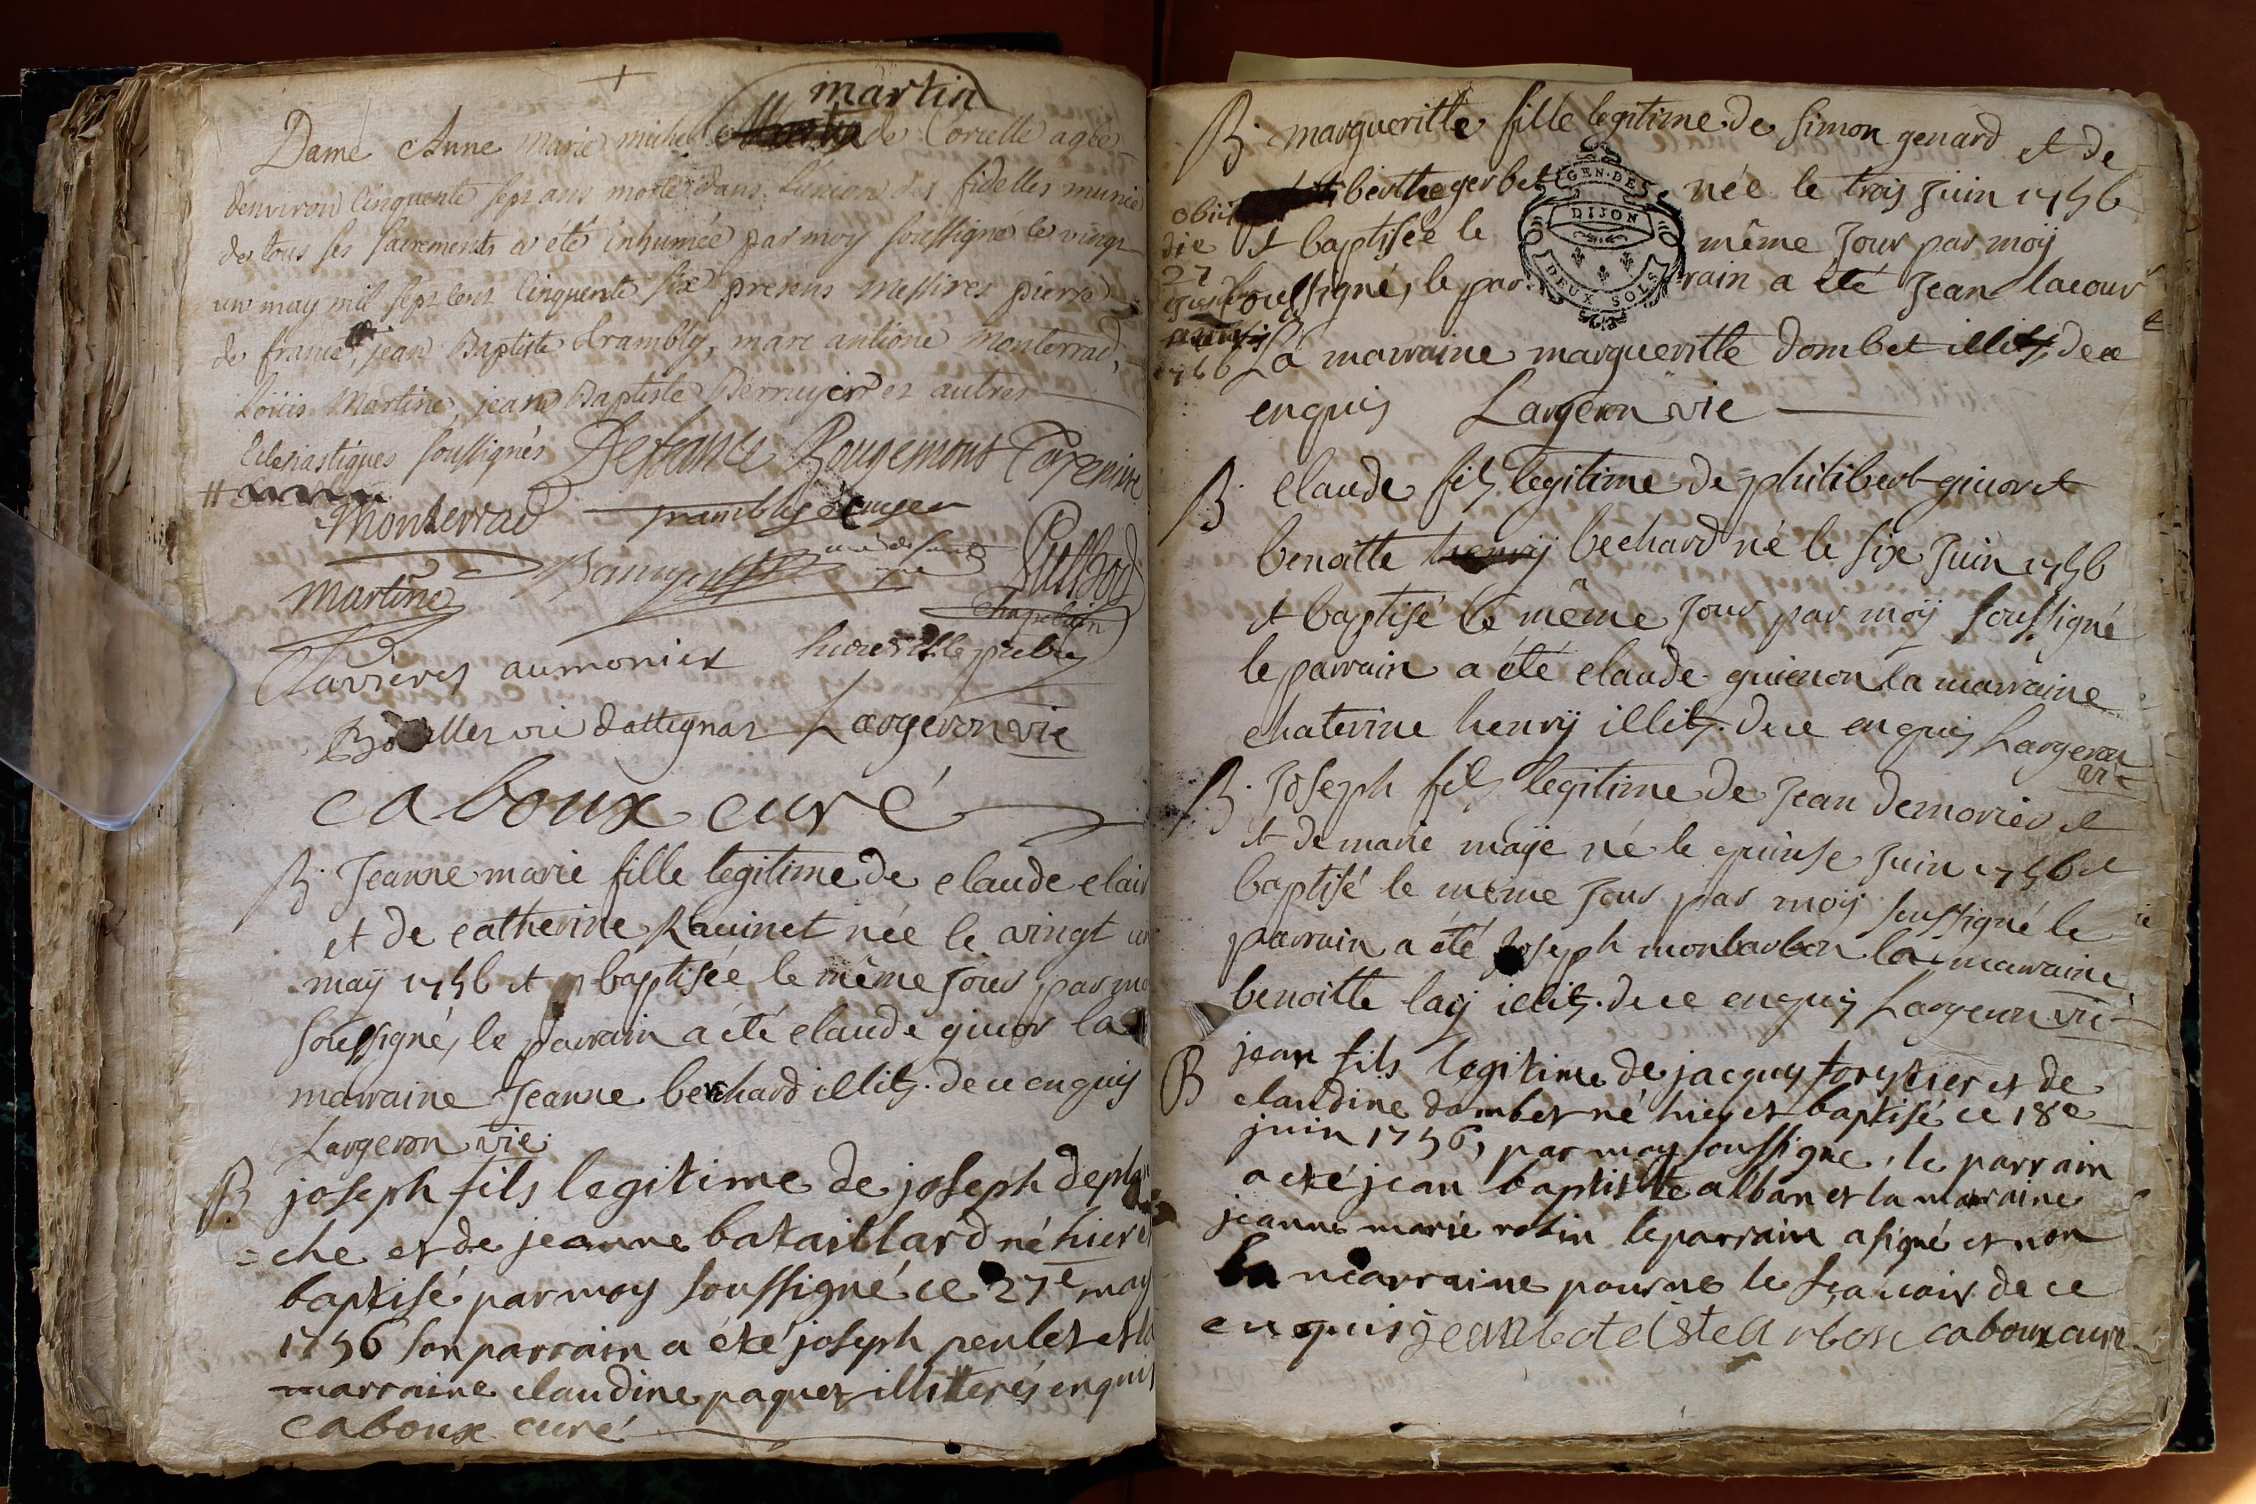 martin
Dame Anne Marie michel de Corcelle agée
denviron Cinquente sept ans morte dans l'union des fidelles munie
de tous ses sacrements a été inhumée par moy soussigné le vingt
un may mil sept cent Cinquente six presens messires pierre
de france, jean Baptiste trambly, marc antione monterrad,
Loüis Martine, jean Baptiste Perruyer et autres
Eclesiastiques soussignés Defrance Rougemont
Monterrad trambly
martine
chapelain
aumonier
vie Largeron vie
caboux curé
B. Jeanne marie fille legitime de claude clair
et de catherine Ravinet née le vingt un
maÿ 1756 et baptisée le même Jour par mo
soussigné, le parrain a été claude giuor la
marraine Jeanne bechard illits. de ce enquis
Largeron vie.
B joseph fils legitime de joseph depla
= che et de jeanne bataillard né hier et
baptisé par moy soussigné ce 27e may
1756 son parrain a été joseph penlet et la
marraine claudine paquet illiterés enquis
caboux curé
B. margueritte fille legitime de simon genard et de
berthe gerbet née le trois Juin 1756
et baptisée le même Jour par moÿ
soussigné, le parrain a été Jean lacour
La marraine margueritte dombet illits, de ce
enquis Largeron vie
obiit
die
27
1756
GEN. DE
DIJON
DEUX SOLS
B. claude fils legitime de philibert giuor et
benoitte bechard né le six Juin 1756
et baptisé le même Jour par moÿ soussigné
le parrain a été claude guienon la marraine
chaterine henrÿ illits. de ce enquis Largeron
vie
B. Joseph fils legitime de Jean demorier et
et de marie maÿe né le quinse Juin 1756 et
baptisé le même Jour par moÿ soussigné le
parrain a été Joseph monbarbon la marraine
benoitte laÿ illits. de ce enquis Largeron vie
B jean fils legitime de jacques forestier et de
claudine dombet né hier et baptisé ce 18e
juin 1756, par moy soussigné, le parrain
a eté jean baptiste alban et la maraine
jeanne marie robin le parrain a signé et non
la marraine pour ne le sçavoir de ce
enquis caboux curé